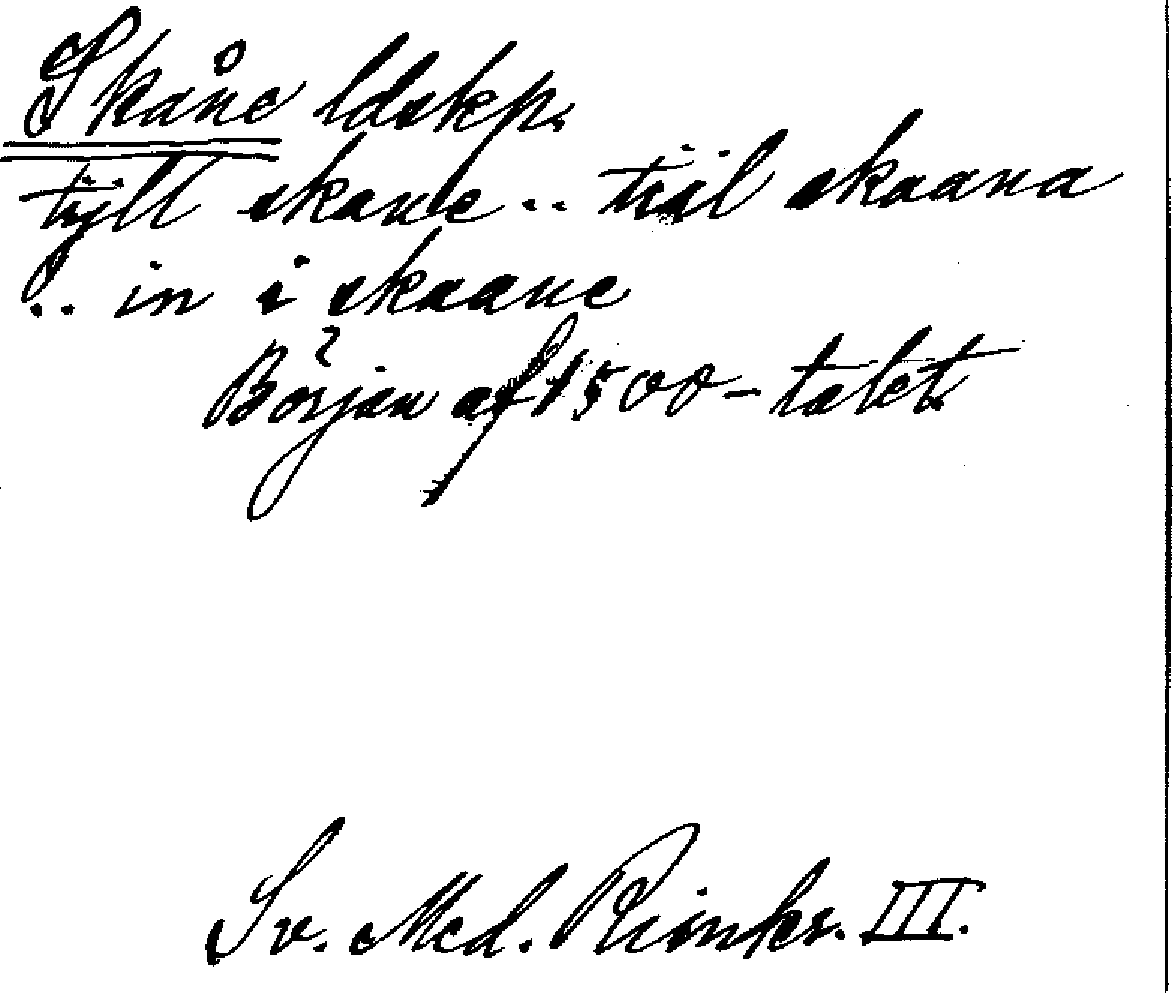 Skåne ldskp.
tijll skane .. tiil skaana
.. in i skaane
Början af 1500-talet.
Sv. Med. Rimkr. III.